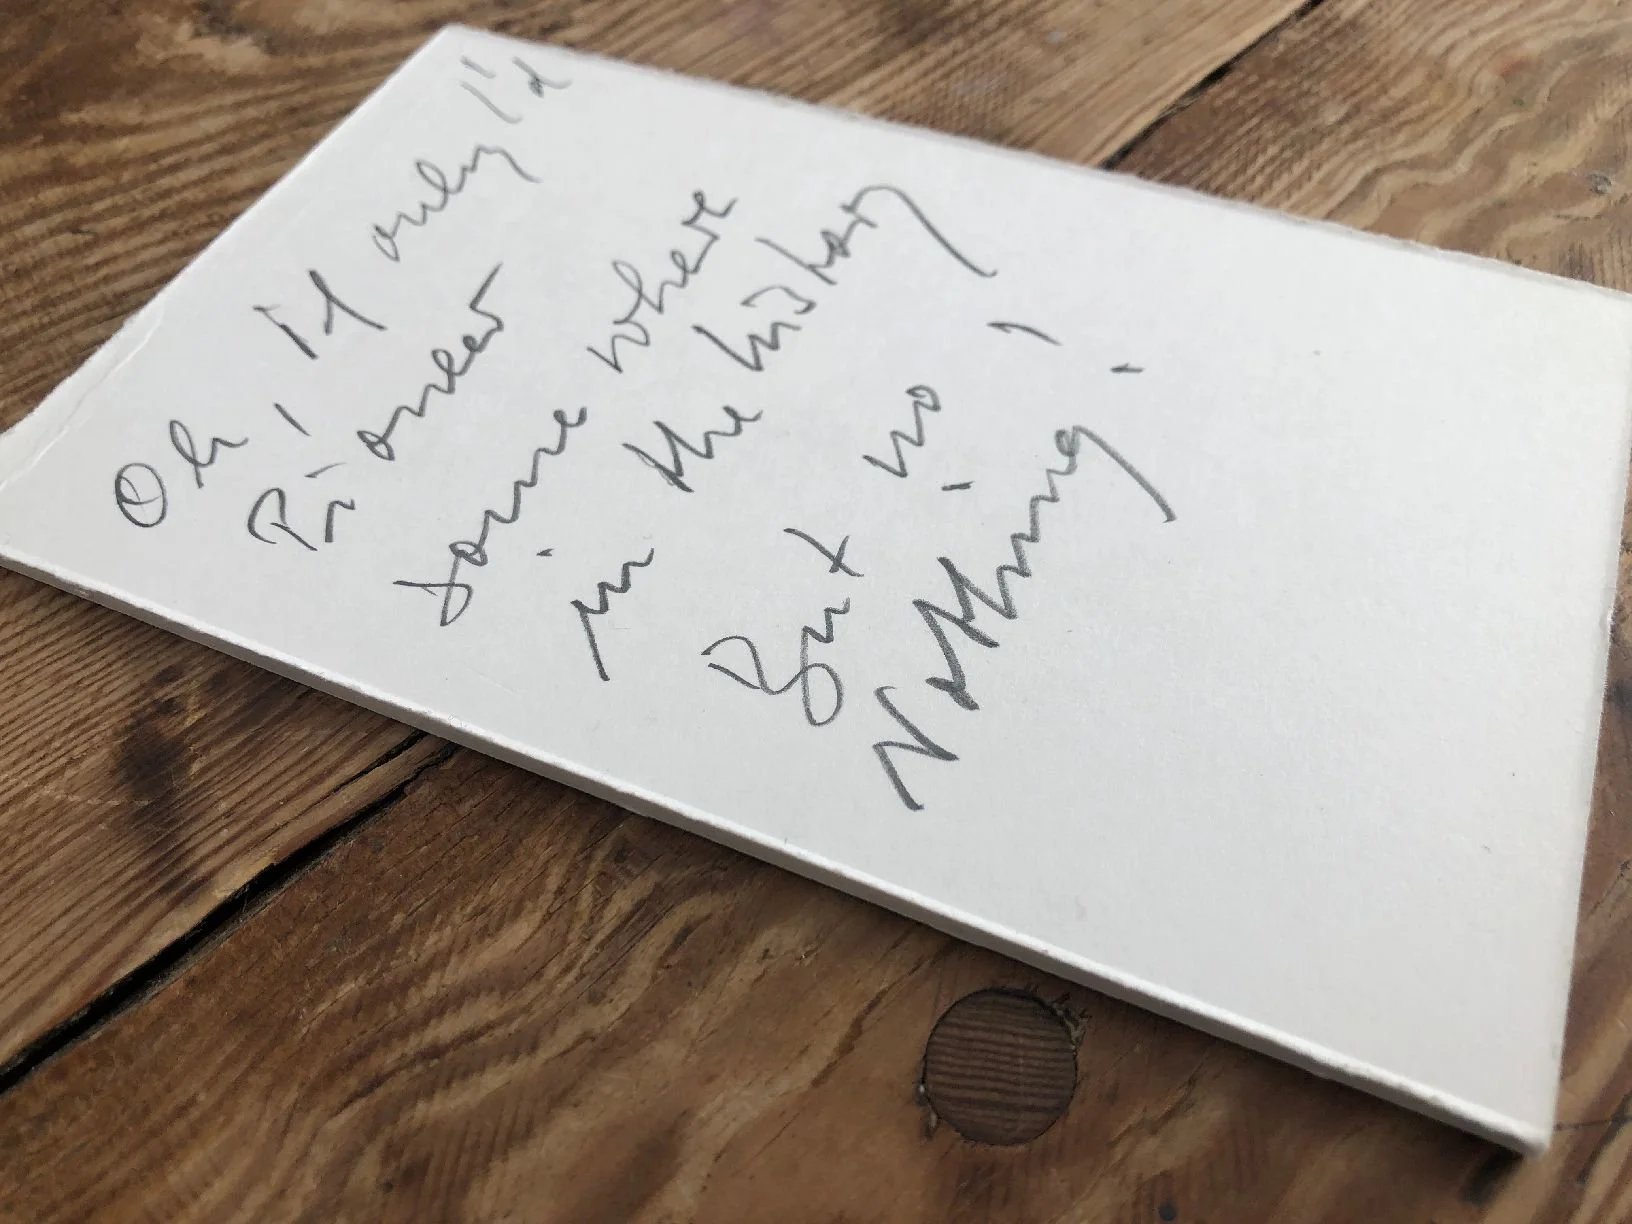 Oh, if only I'd
Pioneer
somewhere
in the history
But no!
Nothing.